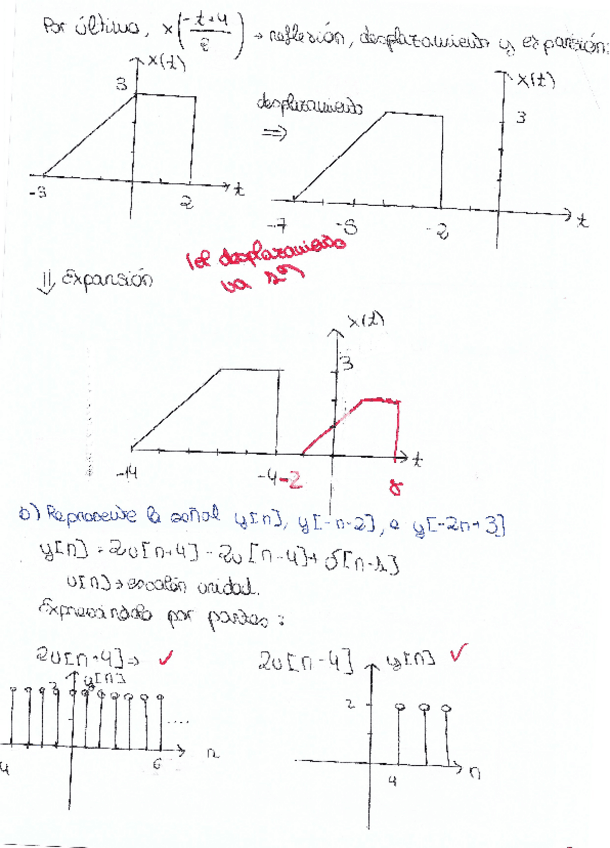 Por último, x(-t+4/2) → reflexión, desplazamiento y expansión:
x(t)
3
-3
2
t
desplazamiento
⇒
x(t)
3
-7
-3
-2
t
(el desplazamiento
va 1º)
⇓ Expansión
x(t)
3
-14
-4
-2
8
t
b) Represente la señal y[n], y[-n-2], e y[-2n+3]
y[n] = 2u[n+4] - 2u[n-4] + δ[n-1]
u[n] → escalón unidad.
Expresándola por partes:
2u[n+4] ⇒ ✓
y[n]
2
....
4
6
n
2u[n-4]
y[n] ✓
2
4
n